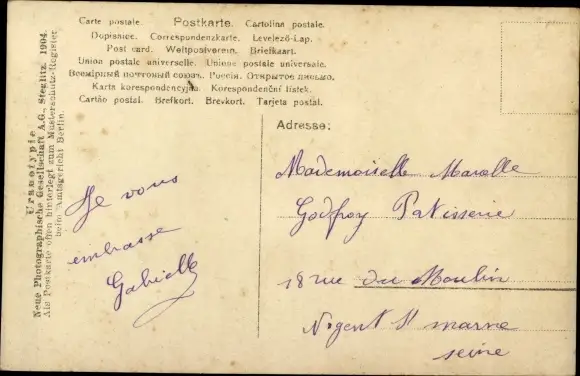 Carte postale. Postkarte. Cartolina postale.
Dopisnice. Correspondenzkarte. Levelező-Lap.
Post card. Weltpostverein. Briefkaart.
Union postale universelle. Unione postale universale.
Всемірный почтовый союзъ. Россія. Открытое письмо.
Karta korespondencyjna. Korespondenční listek.
Cartão postal. Brefkort. Brevkort. Tarjeta postal.
Uranotypie.
Neue Photographische Gesellschaft A.G., Steglitz 1904.
Als Postkarte offen hinterlegt zum Musterschutz-Register
beim Amtsgericht Berlin.
Je vous
embrasse
Gabrielle
Adresse:
Mademoiselle Marcelle
Godfroy Patisserie
18 rue du Moulin
Nogent St marne
seine